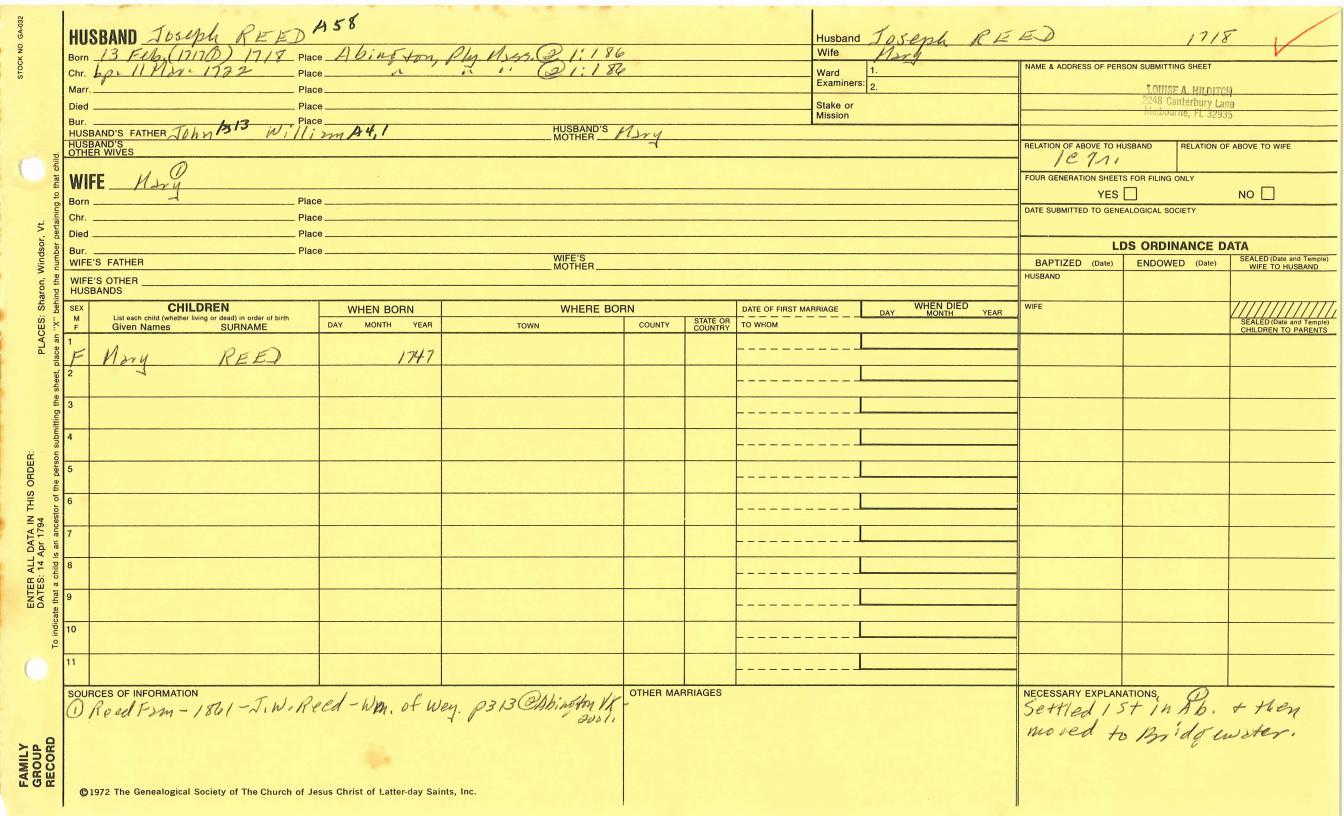 STOCK NO. GA-032
HUSBAND Joseph REED A58
Born 13 Feb. (1717/8) 1718 Place Abington, Ply Mass. ② 1:186
Chr. bp. 11 Mar. 1722 Place " " " ② 1:186
Marr. Place
Died Place
Bur. Place
HUSBAND'S FATHER John A13 William A4,1 HUSBAND'S MOTHER Mary
HUSBAND'S OTHER WIVES
Husband Joseph REED 1718
Wife Mary
Ward Examiners: 1.
2.
Stake or Mission
NAME & ADDRESS OF PERSON SUBMITTING SHEET
LOUISE A. HILDITCH
2248 Canterbury Lane
Melbourne, FL 32935
RELATION OF ABOVE TO HUSBAND RELATION OF ABOVE TO WIFE
FOUR GENERATION SHEETS FOR FILING ONLY
YES NO
DATE SUBMITTED TO GENEALOGICAL SOCIETY
WIFE Mary ①
Born Place
Chr. Place
Died Place
Bur. Place
WIFE'S FATHER WIFE'S MOTHER
WIFE'S OTHER HUSBANDS
LDS ORDINANCE DATA
BAPTIZED (Date) ENDOWED (Date) SEALED (Date and Temple) WIFE TO HUSBAND
HUSBAND
WIFE
SEALED (Date and Temple) CHILDREN TO PARENTS
SEX M F
CHILDREN
List each child (whether living or dead) in order of birth
Given Names SURNAME
WHEN BORN
DAY MONTH YEAR
WHERE BORN
TOWN COUNTY STATE OR COUNTRY
DATE OF FIRST MARRIAGE
TO WHOM
WHEN DIED
DAY MONTH YEAR
1
F Mary REED 1747
2
3
4
5
6
7
8
9
10
11
SOURCES OF INFORMATION
① Reed Fam - 1861 - J.W. Reed - Wm. of Wey. p313 ② Abington VR -
2001.
OTHER MARRIAGES
NECESSARY EXPLANATIONS ①
Settled 1st in Ab. + then
moved to Bridgewater.
©1972 The Genealogical Society of The Church of Jesus Christ of Latter-day Saints, Inc.
FAMILY
GROUP
RECORD
ENTER ALL DATA IN THIS ORDER:
DATES: 14 Apr 1794 PLACES: Sharon, Windsor, Vt.
To indicate that a child is an ancestor of the person submitting the sheet, place an "X" behind the number pertaining to that child.